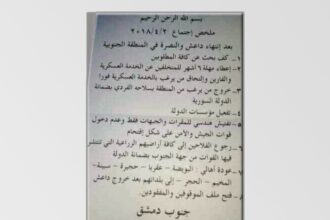 بسم الله الرحمن الرحيم
ملخص إجتماع ٢٠١٨/٤/٢
بعد إنتهاء داعش والنصرة في المنطقة الجنوبية
١- كف بحث عن كافة المطلوبين
٢- إعطاء مهلة ٦ أشهر للمتخلفين عن الخدمة العسكرية
والفارين وإلتحاق من يرغب بالخدمة العسكرية فورا
٣- خروج من يرغب من المنطقة بسلاحه الفردي بضمانة
الدولة السورية
٤- تفعيل مؤسسات الدولة
٥- تفتيش هندسي للمقرات والجبهات فقط وعدم دخول
قوات الجيش والأمن على شكل إقتحام
٦- رجوع الفلاحين إلى كافة أراضيهم الزراعية التي تنتشر
فيها القوات من جهة الجنوب بضمانة الدولة
٧- عودة أهالي - البويضة - عقربا - حجيرة - سبينة -
المخيم - الحجر - إلى بلداتهم بعد خروج داعش
٨- فتح ملف الموقوفين والمفقودين.
جنوب دمشق